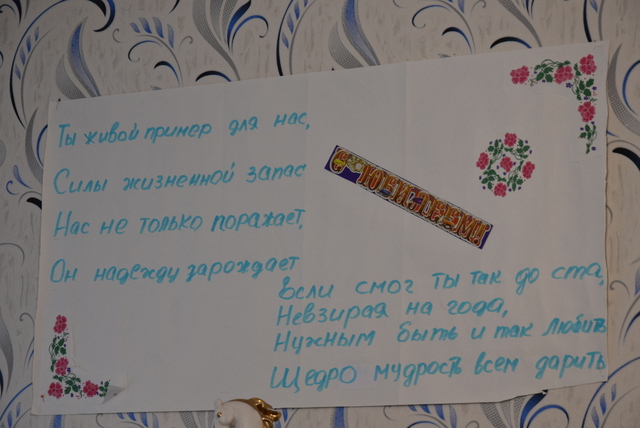 Ты живой пример для нас,
Силы жизненной запас
Нас не только поражает,
Он надежду зарождает
С ЮБИЛЕЕМ!
Если смог ты так до ста,
Невзирая на года,
Нужным быть и так любить
Щедро мудрость всем дарить